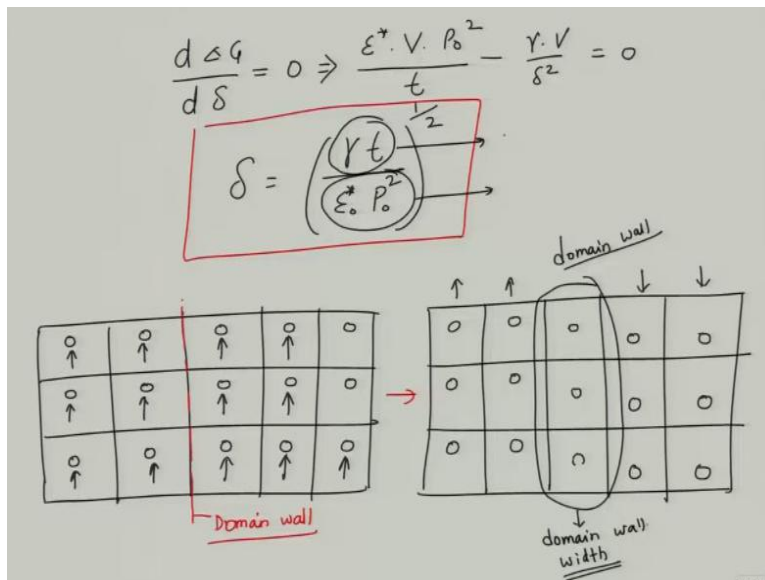 d ΔG / d δ = 0 ⇒ ε*. V. P₀² / t − γ. V / δ² = 0
δ = ( γ t / ε₀* P₀² )^1/2
domain wall
Domain wall
domain wall
width